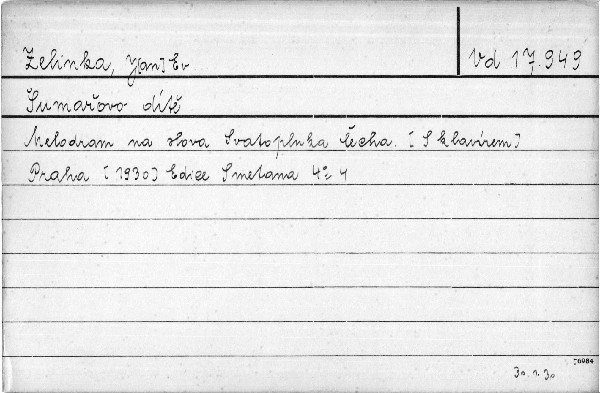 Zelinka, J[an] Ev
Vd 17.949
Šumařovo dítě
Melodram na slova Svatopluka Čecha. [S klavírem]
Praha [1930] Edice Smetana 4° 4
76984